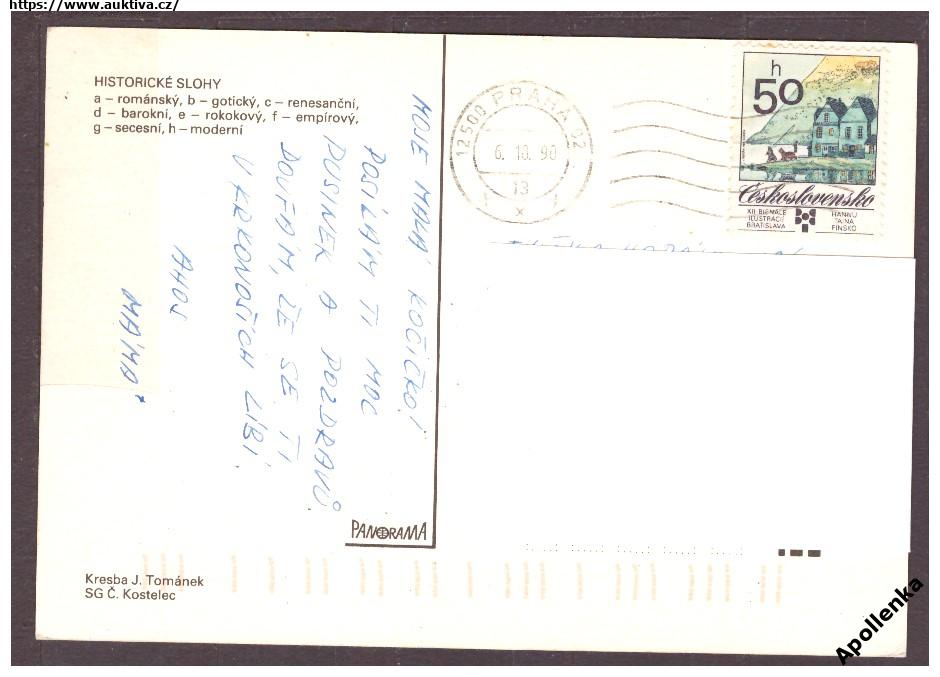 https://www.auktiva.cz/
HISTORICKÉ SLOHY
a – románský, b – gotický, c – renesanční,
d – barokní, e – rokokový, f – empírový,
g – secesní, h – moderní
MOJE MALÁ KOČIČKO!
POSÍLÁM TI MOC
PUSINEK A POZDRAVŮ.
DOUFÁM, ŽE SE TI
V KRKONOŠÍCH LÍBÍ.
AHOJ
MÁMA
PANORAMA
Kresba J. Tománek
SG Č. Kostelec
12500 PRAHA 02
6. 10. 90
13
x
h
50
Československo
XII. BIENÁLE
ILUSTRÁCIÍ
BRATISLAVA
HANNU
TAINA
FINSKO
Apollenka